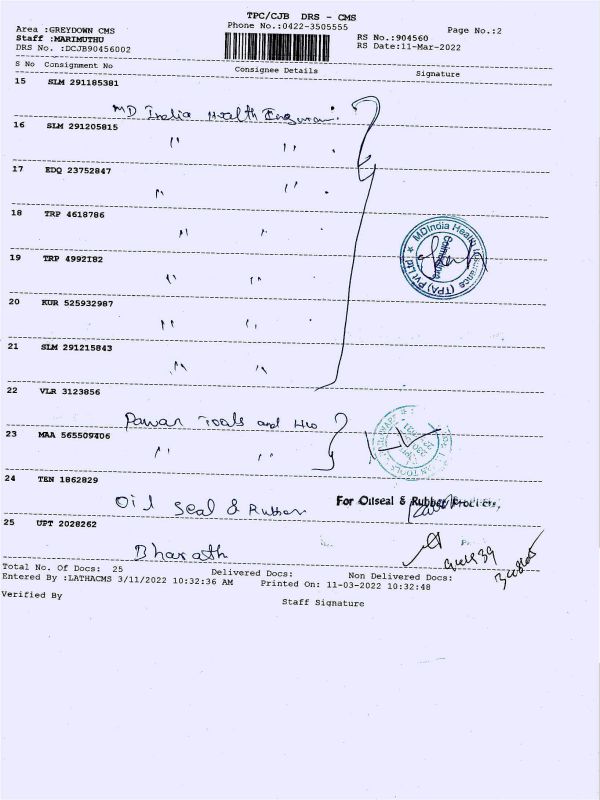 TPC/CJB DRS - CMS
Area :GREYDOWN CMS
Phone No.:0422-3505555
Page No.:2
Staff :MARIMUTHU
RS No.:904560
DRS No. :DCJB90456002
RS Date:11-Mar-2022
S No Consignment No Consignee Details Signature
15 SLM 291185381
MD India Health
16 SLM 291205815
" "
17 EDQ 23752847
" "
18 TRP 4618786
" "
19 TRP 4992182
" "
20 KUR 525932987
" "
21 SLM 291215843
" "
MDIndia Health Insurance (TPA) Pvt Ltd ★
Coimbatore
22 VLR 3123856
Pawan Tools and
23 MAA 565509406
" "
24 TEN 1862829
Oil Seal & Rubber
For Oilseal & Rubber Products,
25 UPT 2028262
Bharath
Total No. Of Docs: 25 Delivered Docs: Non Delivered Docs:
Entered By :LATHACMS 3/11/2022 10:32:36 AM Printed On: 11-03-2022 10:32:48
Verified By Staff Signature